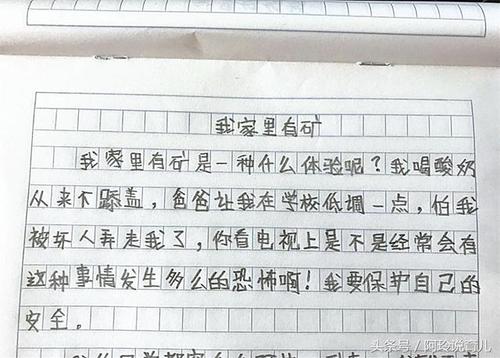 我家里有矿
我家里有矿是一种什么体验呢？我喝酸奶
从来不舔盖，爸爸让我在学校低调一点，怕我
被坏人弄走我了，你看电视上是不是经常会有
这种事情发生多么的恐怖啊！我要保护自己的
安全。
头条号／阿玲说育儿